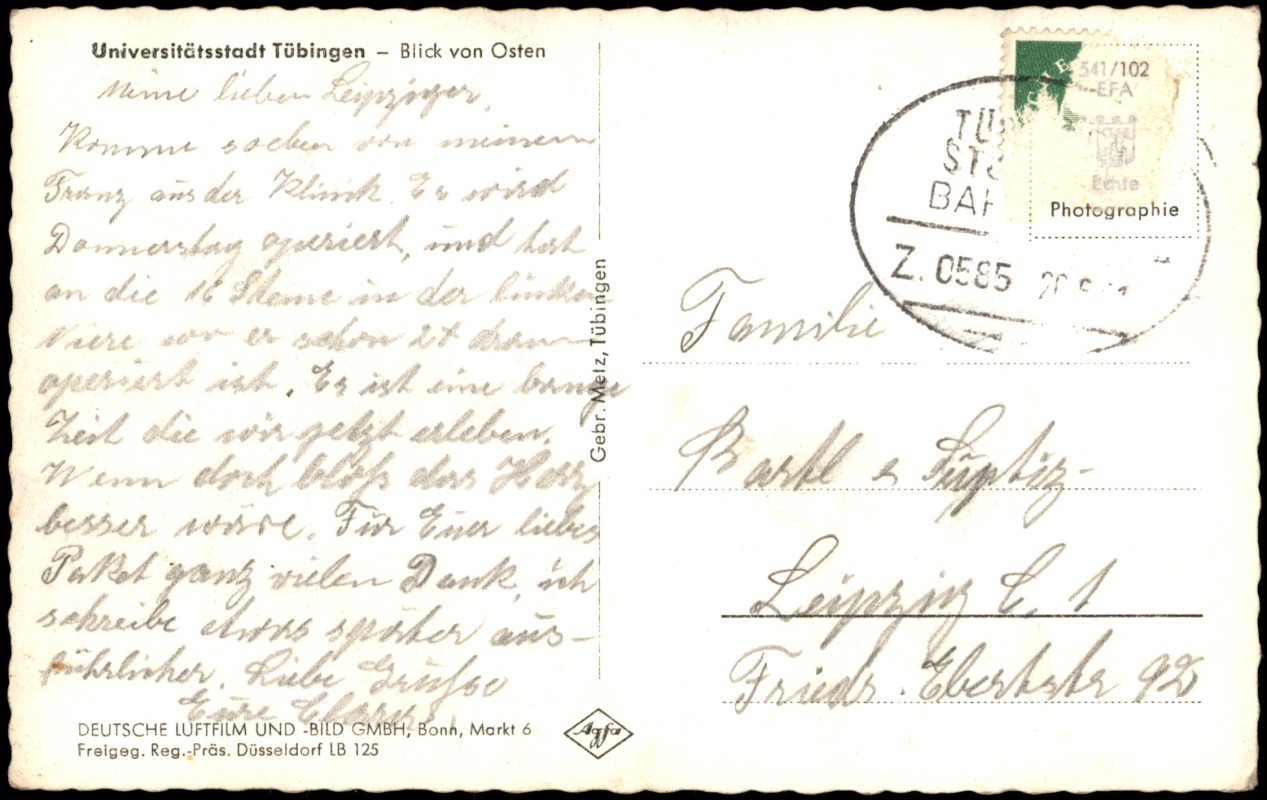 Universitätsstadt Tübingen – Blick von Osten
Meine lieben Leipziger,
Komme soeben von meinem
Franz aus der Klinik. Er wird
Donnerstag operiert, und hat
an die 16 Steine in der linken
Niere wo er schon 2x dran
operiert ist. Es ist eine bange
Zeit die wir jetzt erleben.
Wenn doch bloß das Herz
besser wäre. Für Euer liebes
Paket ganz vielen Dank, ich
schreibe etwas später aus-
führlicher. Liebe Grüße
Eure
DEUTSCHE LUFTFILM UND -BILD GMBH, Bonn, Markt 6
Freigeg. Reg.-Präs. Düsseldorf LB 125
Gebr. Metz, Tübingen
Agfa
541/102
-EFA
Echte
Photographie
BAH
Z. 0585
Familie
Bartl
Leipzig C. 1
Friedr. Ebertstr 92